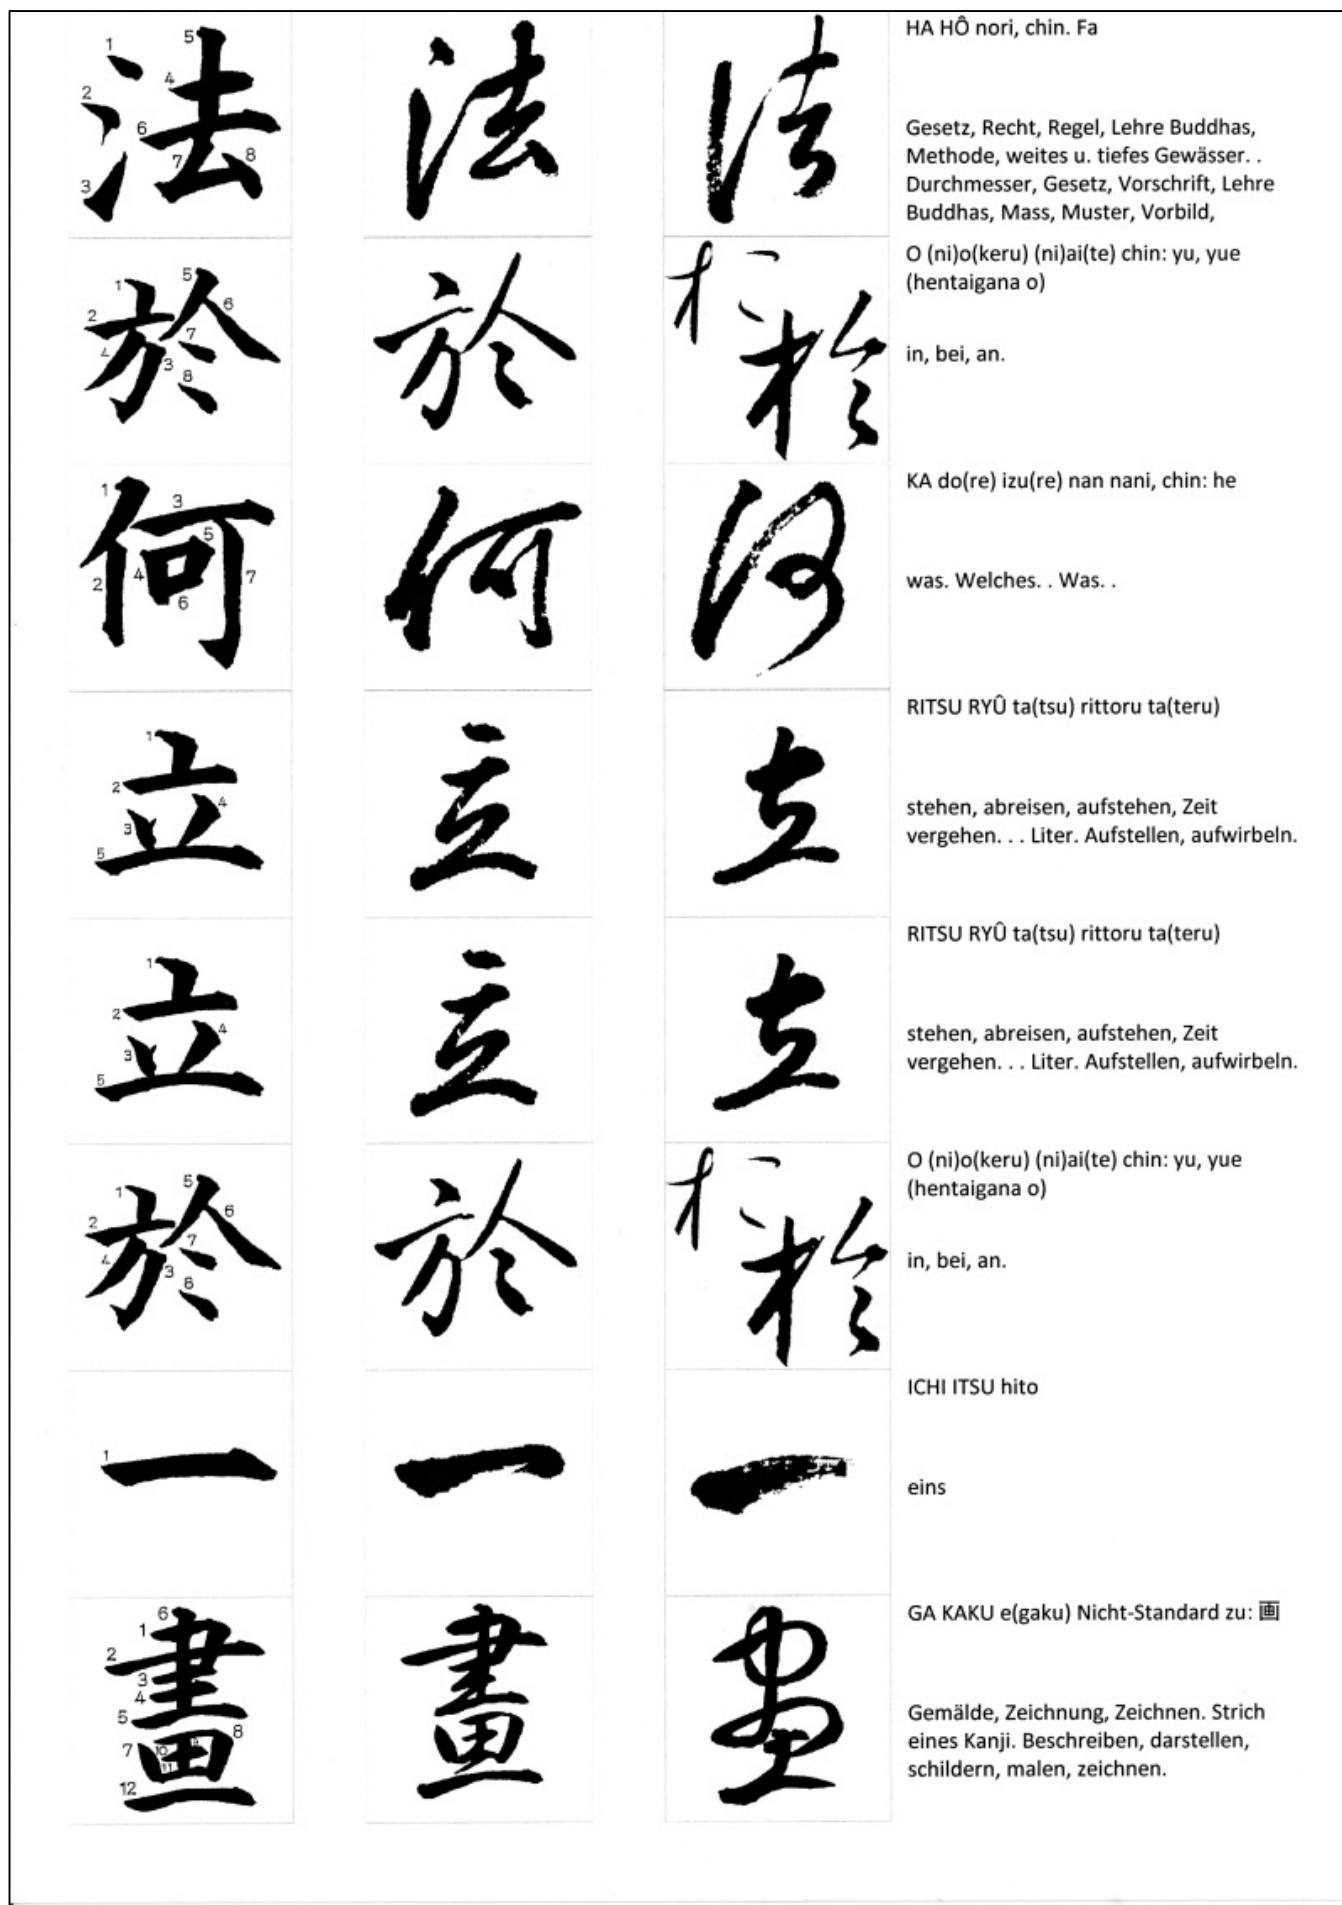 法 法 法
HA HÔ nori, chin. Fa
Gesetz, Recht, Regel, Lehre Buddhas,
Methode, weites u. tiefes Gewässer. .
Durchmesser, Gesetz, Vorschrift, Lehre
Buddhas, Mass, Muster, Vorbild,
於 於 於 於
O (ni)o(keru) (ni)ai(te) chin: yu, yue
(hentaigana o)
in, bei, an.
何 何 何
KA do(re) izu(re) nan nani, chin: he
was. Welches. . Was. .
立 立 立
RITSU RYÛ ta(tsu) rittoru ta(teru)
stehen, abreisen, aufstehen, Zeit
vergehen. . . Liter. Aufstellen, aufwirbeln.
立 立 立
RITSU RYÛ ta(tsu) rittoru ta(teru)
stehen, abreisen, aufstehen, Zeit
vergehen. . . Liter. Aufstellen, aufwirbeln.
於 於 於 於
O (ni)o(keru) (ni)ai(te) chin: yu, yue
(hentaigana o)
in, bei, an.
一 一 一
ICHI ITSU hito
eins
畫 畫 畫
GA KAKU e(gaku) Nicht-Standard zu: 画
Gemälde, Zeichnung, Zeichnen. Strich
eines Kanji. Beschreiben, darstellen,
schildern, malen, zeichnen.